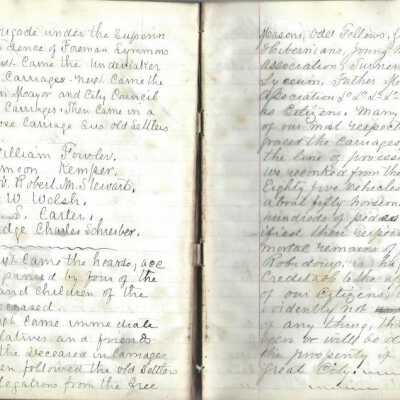 rigade under the Superin
dence of Foreman Lymms
xt Came the Undertaker
Carriages. Next Came the
Mayor and City Council
Carriages. Then Came in a
ose Carriage Six old Settlers
illiam Fowler.
imeon Kemper.
Robert. M. Stewart.
W Walsh.
Carter.
dge Charles Schreiber.
xt Came the hearse, acc
panied by four of the
and Children of the
eceased.
xt Came immediate
latives and friends
the deceased in Carriages
en followed the old Settlers
legations from the free
Masons, Odd Fellows,
Hibernians, young
Association, Turner
Lyceum, Father Ma
Association
as Citizens. Many
of our most respect
graced the Carriages
the line of process
we reconked from the
Eighty five vehicles
about fifty horsem
hundreds of pedes
ified their respec
mortal remains of
Robidoux, is ha
Creditable to the a
of our Citizens,
vidently not
of any thing, tha
been or will be d
the prosperity of
Great City